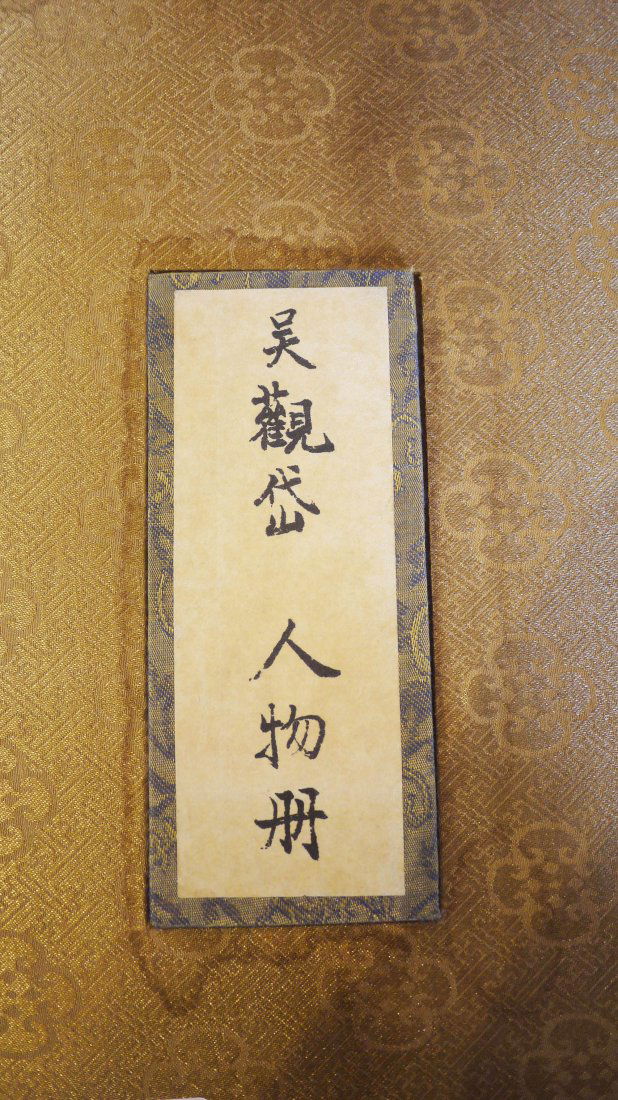 吴觀岱 人物册